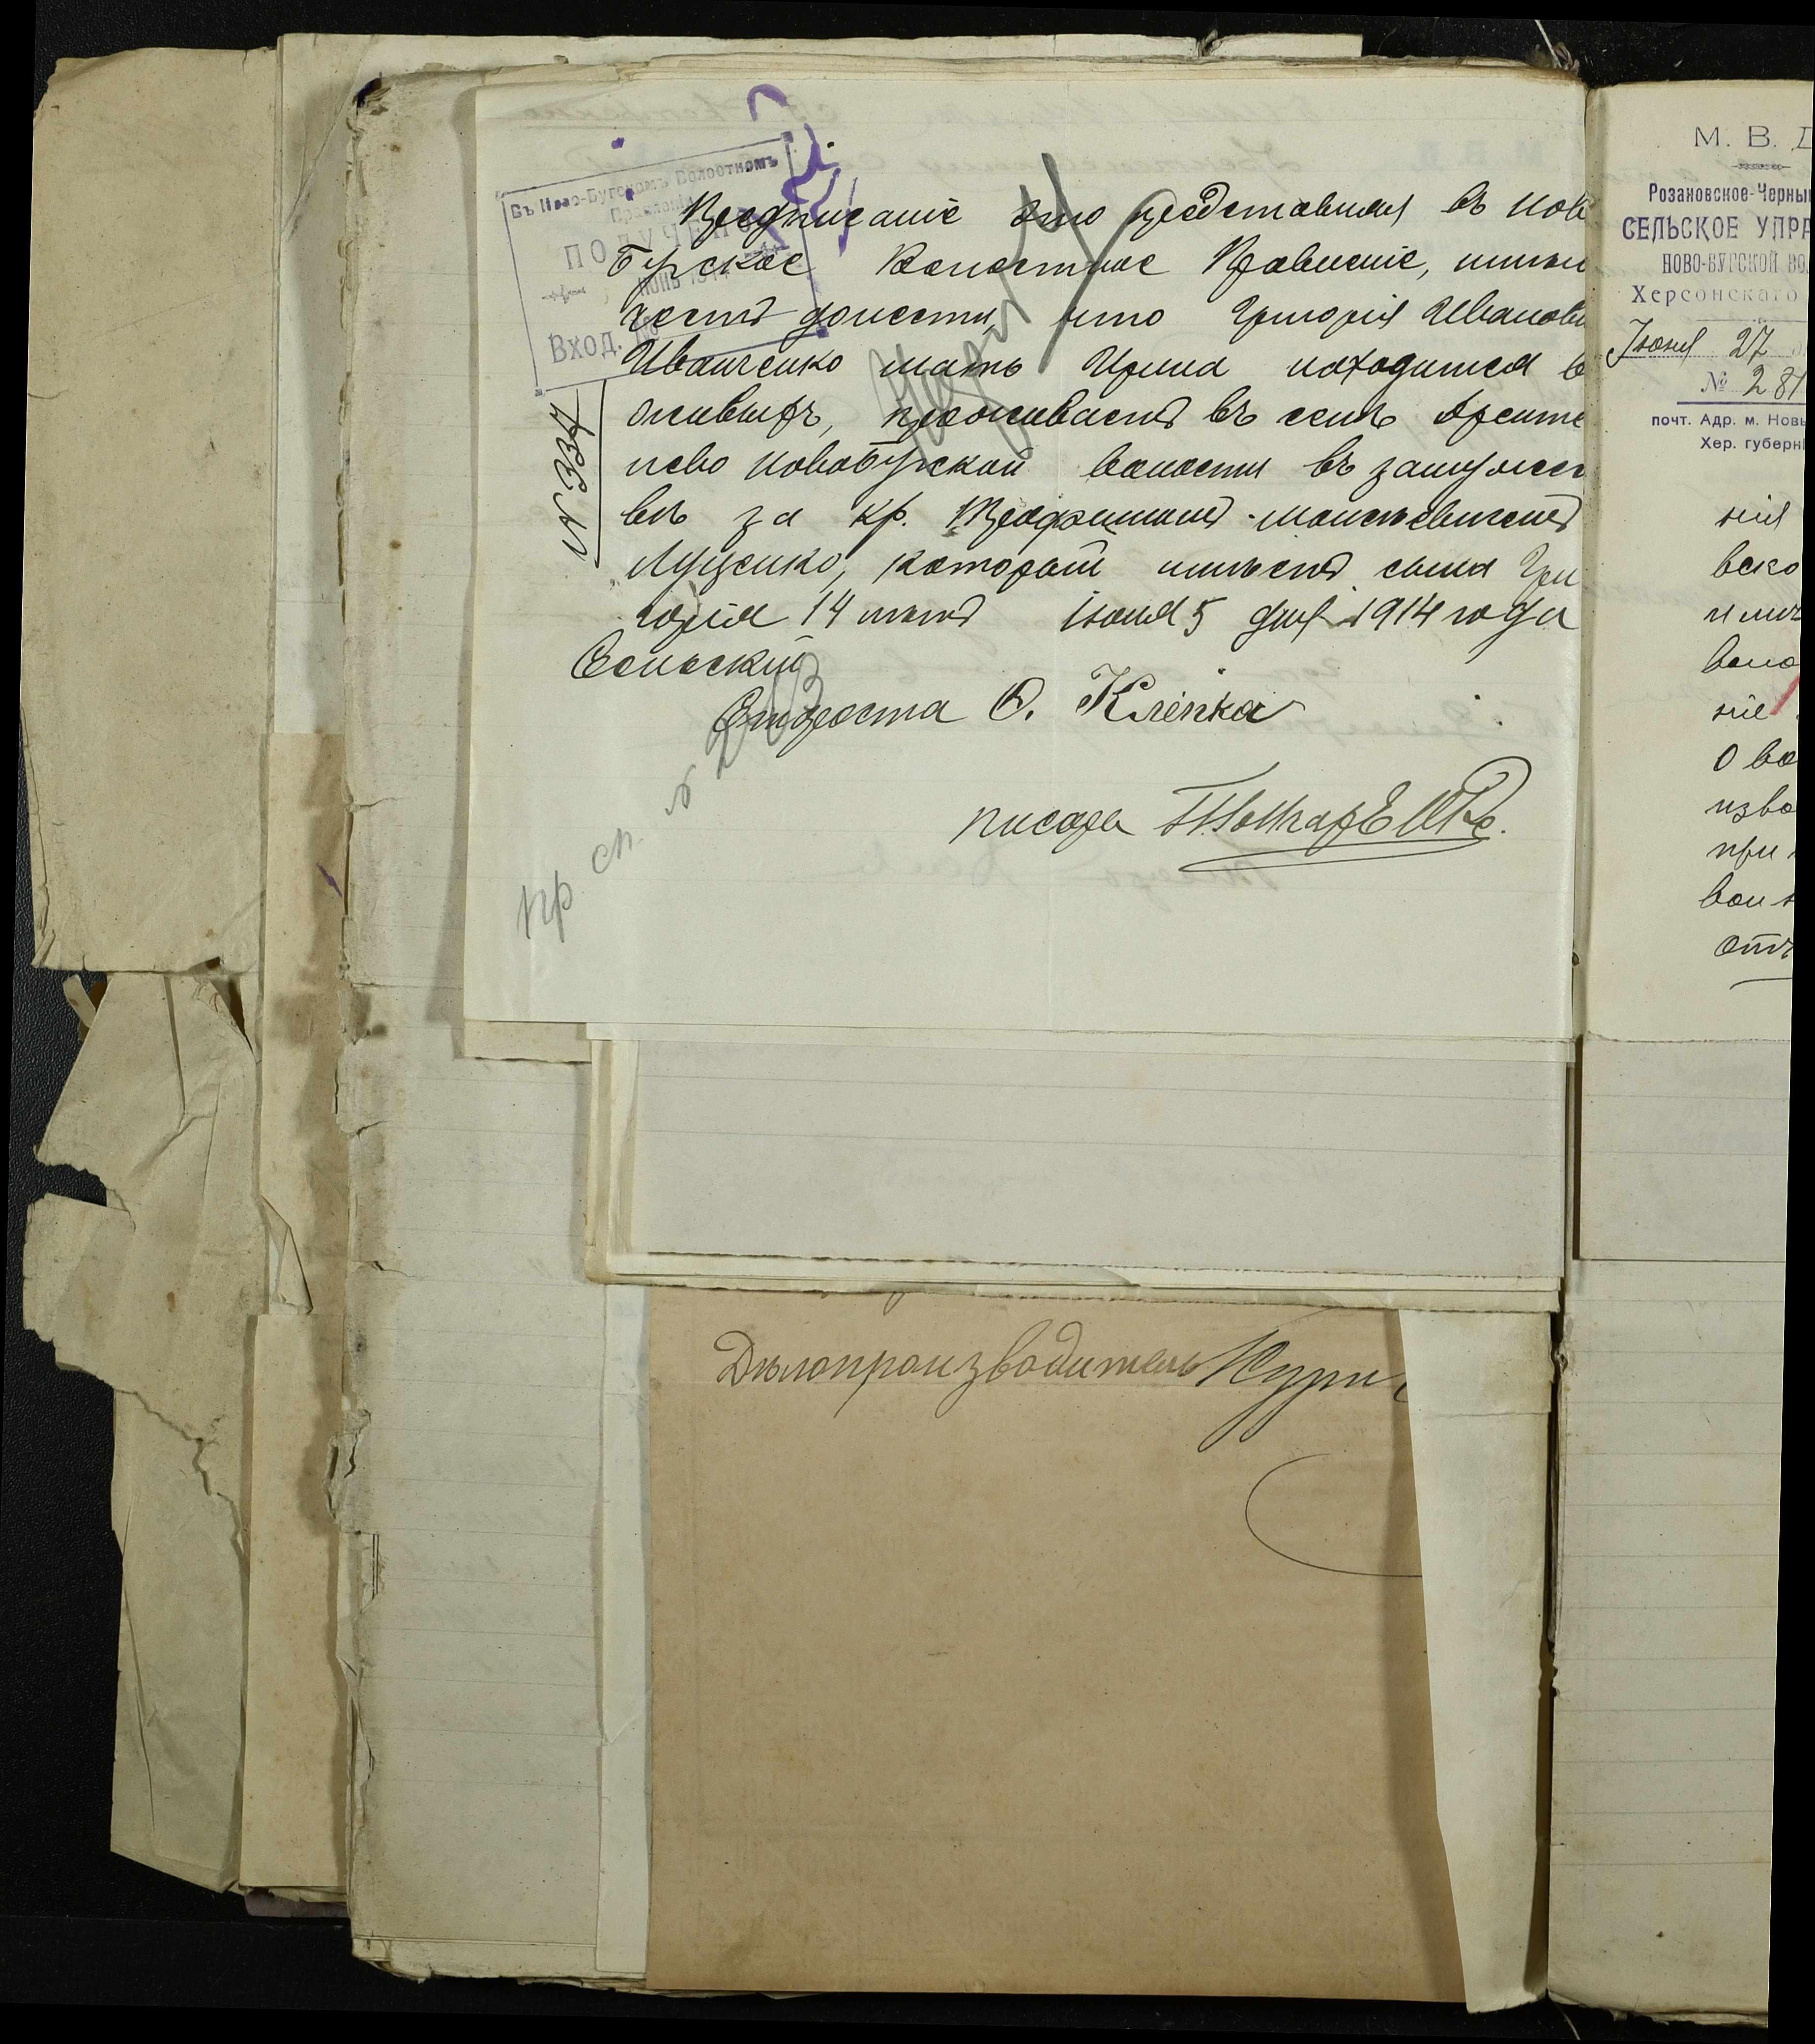 Въ Ново-Бугскомъ Волостномъ
Правленіи
ПОЛУЧЕНО
ІЮНЬ 191
Вход. №
№ 337
Предписаніе это представляя въ Ново
Бугское Волостное Правленіе, имѣю
честь донести, что Григорія Иванови
Иванченко мать Ирина находится въ
живыхъ, проживаетъ въ селѣ
нево Новобугской волости въ замужест
вѣ за кр. Трофимомъ Моисѣевичемъ
Луценко, который имѣетъ сына Гри
горія 14 лѣтъ Іюня 5 дня 1914 года
Сельскій
Староста О. Клепка
писарь
пр. сп. № 203
Дѣлопроизводитель
М. В. Д
Розановское-Черный
СЕЛЬСКОЕ УПРА
НОВО-БУГСКОЙ ВО
Херсонскаго
Іюня 27
№ 281
почт. Адр. м. Новы
Хер. губерн
нія
вско
имъ
воло
ніе
О во
изво
при
вои
отъ